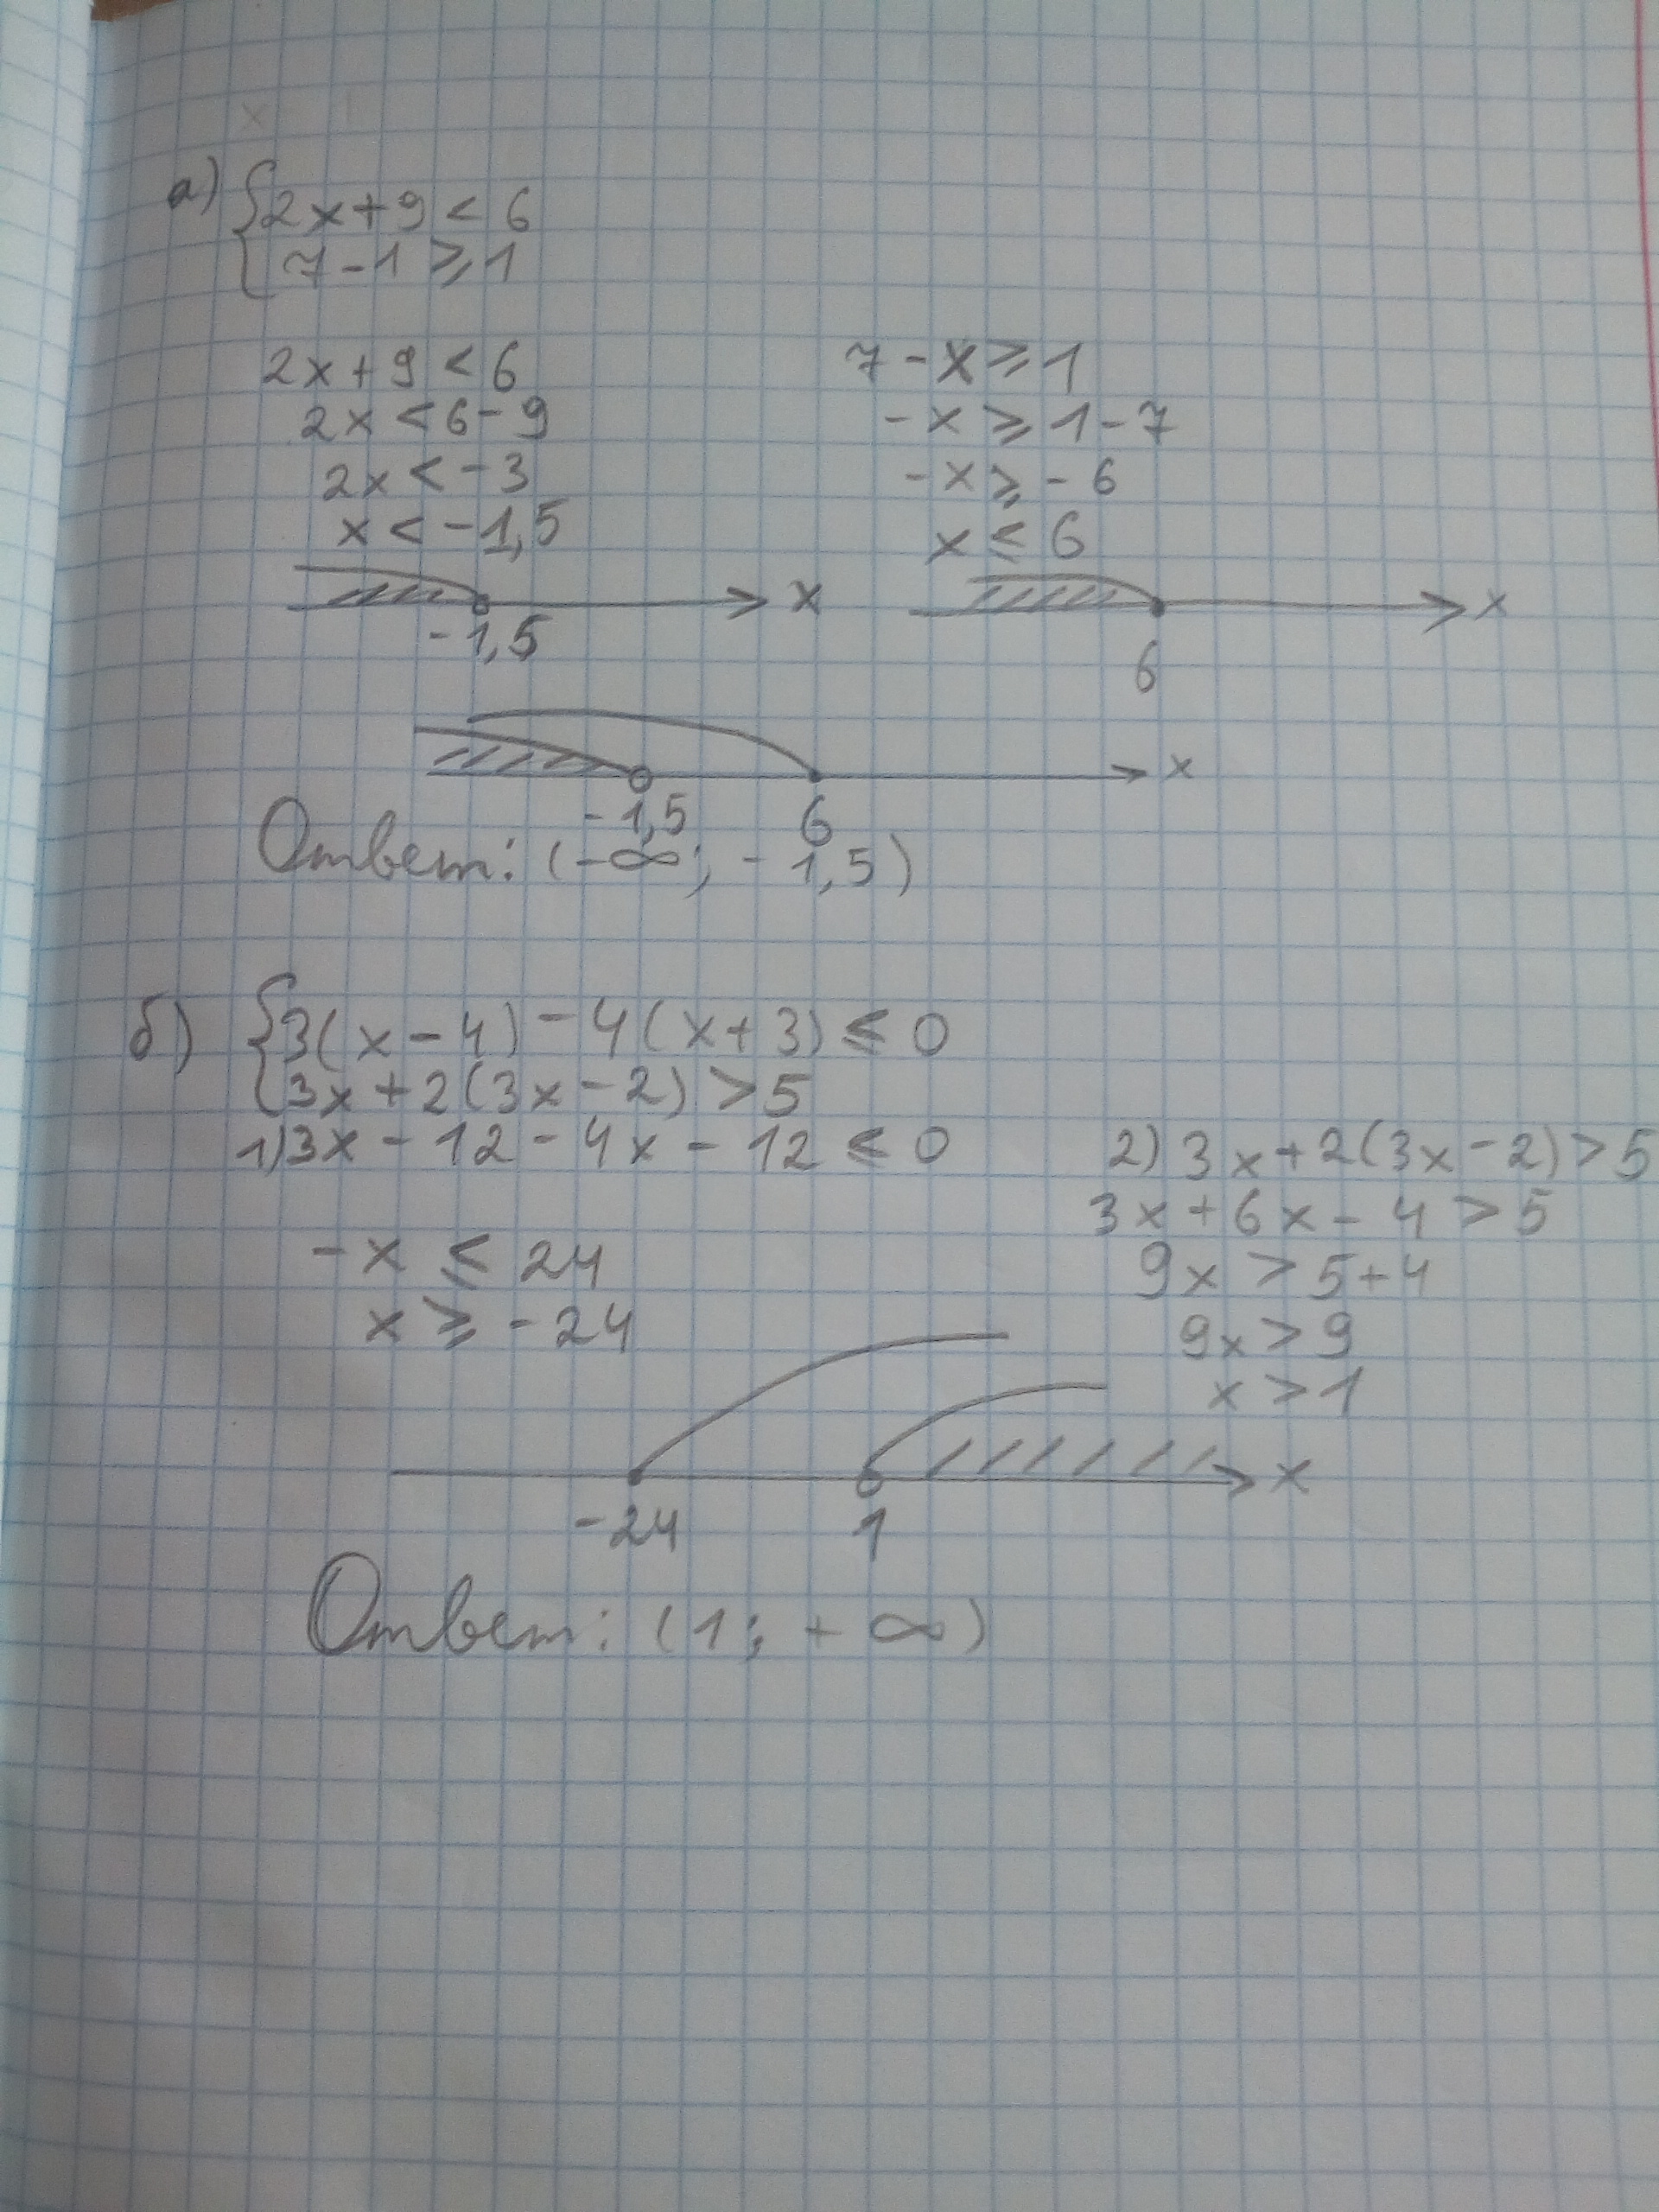 а) { 2x + 9 < 6
7 - 1 ⩾ 1
2x + 9 < 6
2x < 6 - 9
2x < - 3
x < - 1,5
x
- 1,5
7 - x ⩾ 1
- x ⩾ 1 - 7
- x ⩾ - 6
x ⩽ 6
x
6
x
- 1,5 6
Ответ: (-∞; - 1,5)
б) { 3(x - 4) - 4(x + 3) ⩽ 0
3x + 2(3x - 2) > 5
1) 3x - 12 - 4x - 12 ⩽ 0
- x ⩽ 24
x ⩾ - 24
2) 3x + 2(3x - 2) > 5
3x + 6x - 4 > 5
9x > 5 + 4
9x > 9
x > 1
x
- 24 1
Ответ: (1; + ∞)